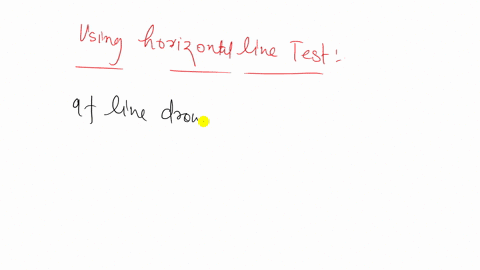 Using horizontal line Test:
If line drow